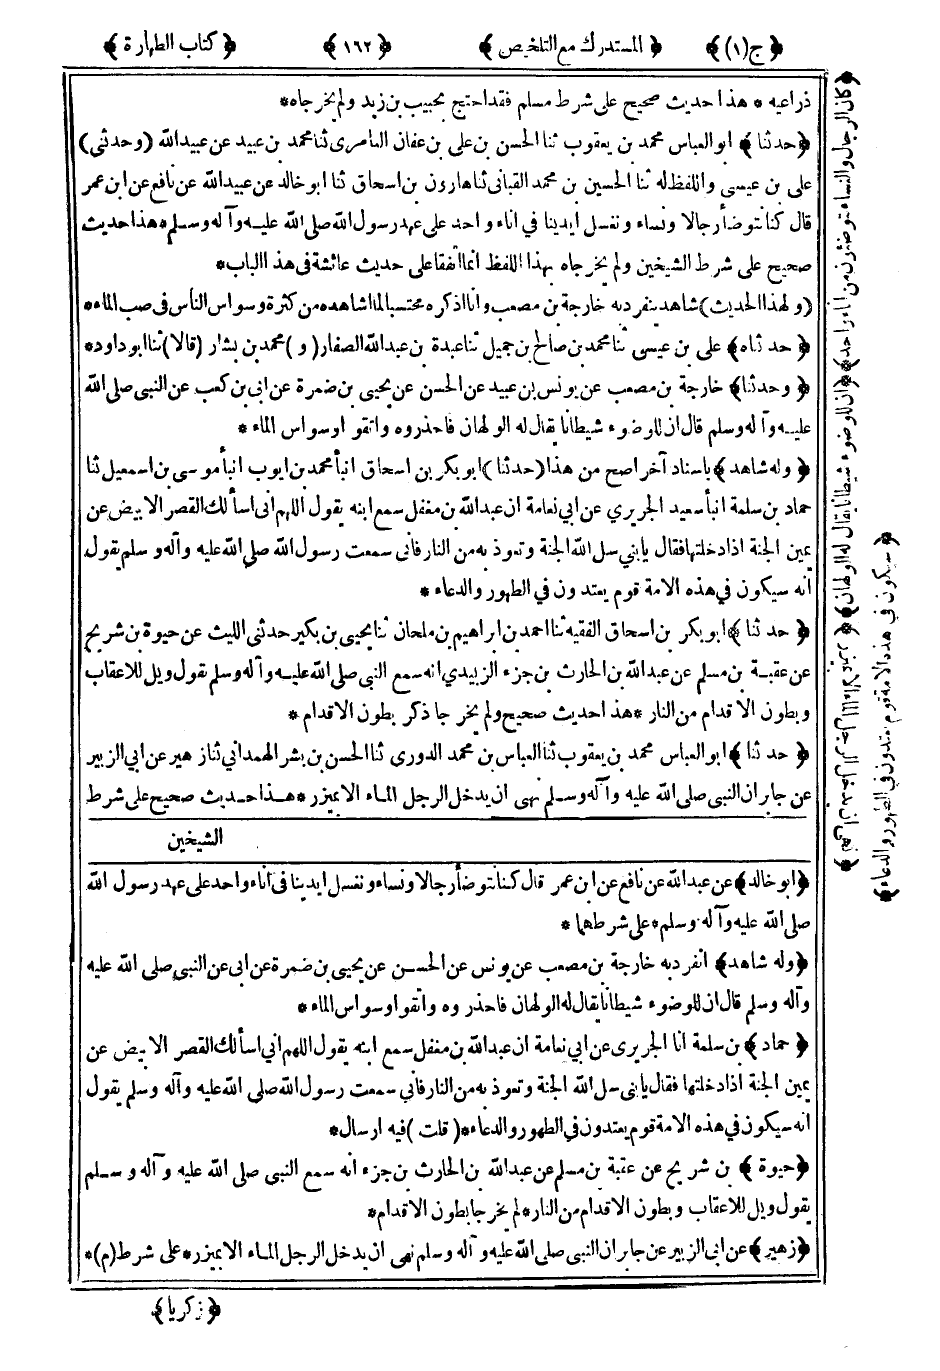 ﴿ ج(١) ﴾ ﴿ المستدرك مع التلخيص ﴾ ﴿ ١٦٢ ﴾ ﴿ كتاب الطهارة ﴾
ذراعيه * هذا حديث صحيح على شرط مسلم فقد احتج بحبيب بن زيد ولم يخرجاه *
﴿ حدثنا ﴾ ابو العباس محمد بن يعقوب ثنا الحسن بن على بن عفان العامرى ثنا محمد بن عبيد عن عبيد الله (وحدثنى)
على بن عيسى واللفظ له ثنا الحسين بن محمد القبانى ثنا هارون بن اسحاق ثنا ابو خالد عن عبيد الله عن نافع عن ابن عمر
قال كنا نتوضأ رجالا ونساء ونغسل ايدينا فى اناء واحد على عهد رسول الله صلى الله عليه وآله وسلم * هذا حديث
صحيح على شرط الشيخين ولم يخرجاه بهذا اللفظ انما اتفقا على حديث عائشة فى هذا الباب *
(ولهذا الحديث) شاهد ينفرد به خارجة بن مصعب وانا اذكره محتسبا لما اشاهده من كثرة وسواس الناس فى صب الماء *
﴿ حدثناه ﴾ على بن عيسى ثنا محمد بن صالح بن جميل ثنا عبدة بن عبد الله الصفار (و) محمد بن بشار (قالا) ثنا ابو داود *
﴿ وحدثنا ﴾ خارجة بن مصعب عن يونس بن عبيد عن الحسن عن يحيى بن ضمرة عن ابى بن كعب عن النبى صلى الله
عليه وآله وسلم قال ان للوضوء شيطانا يقال له الولهان فاحذروه واتقوا وسواس الماء *
﴿ وله شاهد ﴾ باسناد آخر اصح من هذا (حدثنا) ابو بكر بن اسحاق انبأ محمد بن ايوب انبأ موسى بن اسمعيل ثنا
حماد بن سلمة انبأ سعيد الجريري عن ابي نعامة ان عبد الله بن مغفل سمع ابنه يقول اللهم انى اسألك القصر الابيض عن
يمين الجنة اذا دخلتها فقال يابني سل الله الجنة وتعوذ به من النار فانى سمعت رسول الله صلى الله عليه وآله وسلم يقول
انه سيكون في هذه الامة قوم يعتدون في الطهور والدعاء *
﴿ حدثنا ﴾ ابو بكر بن اسحاق الفقيه ثنا احمد بن ابراهيم بن ملحان ثنا يحيى بن بكير حدثني الليث عن حيوة بن شريح
عن عقبة بن مسلم عن عبد الله بن الحارث بن جزء الزبيدي انه سمع النبي صلى الله عليه وآله وسلم يقول ويل للاعقاب
وبطون الاقدام من النار * هذا حديث صحيح ولم يخرجا ذكر بطون الاقدام *
﴿ حدثنا ﴾ ابو العباس محمد بن يعقوب ثنا العباس بن محمد الدورى ثنا الحسن بن بشر الهمدانى ثنا زهير عن ابي الزبير
عن جابر ان النبى صلى الله عليه وآله وسلم نهى ان يدخل الرجل الماء الا بمئزر * هذا حديث صحيح على شرط
الشيخين
﴿ ابو خالد ﴾ عن عبد الله عن نافع عن ابن عمر قال كنا نتوضأ رجالا ونساء ونغسل ايدينا فى اناء واحد على عهد رسول الله
صلى الله عليه وآله وسلم * على شرطهما *
﴿ وله شاهد ﴾ انفرد به خارجة بن مصعب عن يونس عن الحسن عن يحيى بن ضمرة عن ابى عن النبى صلى الله عليه
وآله وسلم قال ان للوضوء شيطانا يقال له الولهان فاحذروه واتقوا وسواس الماء *
﴿ حماد ﴾ بن سلمة انا الجريرى عن ابي نعامة ان عبد الله بن مغفل سمع ابنه يقول اللهم انى اسألك القصر الابيض عن
يمين الجنة اذا دخلتها فقال يابنى سل الله الجنة وتعوذ به من النار فانى سمعت رسول الله صلى الله عليه وآله وسلم يقول
انه سيكون في هذه الامة قوم يعتدون في الطهور والدعاء * (قلت) فيه ارسال *
﴿ حيوة ﴾ بن شريح عن عقبة بن مسلم عن عبد الله بن الحارث بن جزء انه سمع النبي صلى الله عليه وآله وسلم
يقول ويل للاعقاب وبطون الاقدام من النار * لم يخرجا بطون الاقدام *
﴿ زهير ﴾ عن ابى الزبير عن جابر ان النبى صلى الله عليه وآله وسلم نهى ان يدخل الرجل الماء الا بمئزر * على شرط (م) *
﴿ زكريا ﴾
﴿ كان الرجال والنساء يتوضئون من اناء واحد ﴾ ﴿ ان للوضوء شيطانا يقال له الولهان ﴾ ﴿ نهى ان يدخل الرجل الماء الا بمئزر ﴾
﴿ سيكون في هذه الامة قوم يعتدون في الطهور والدعاء ﴾